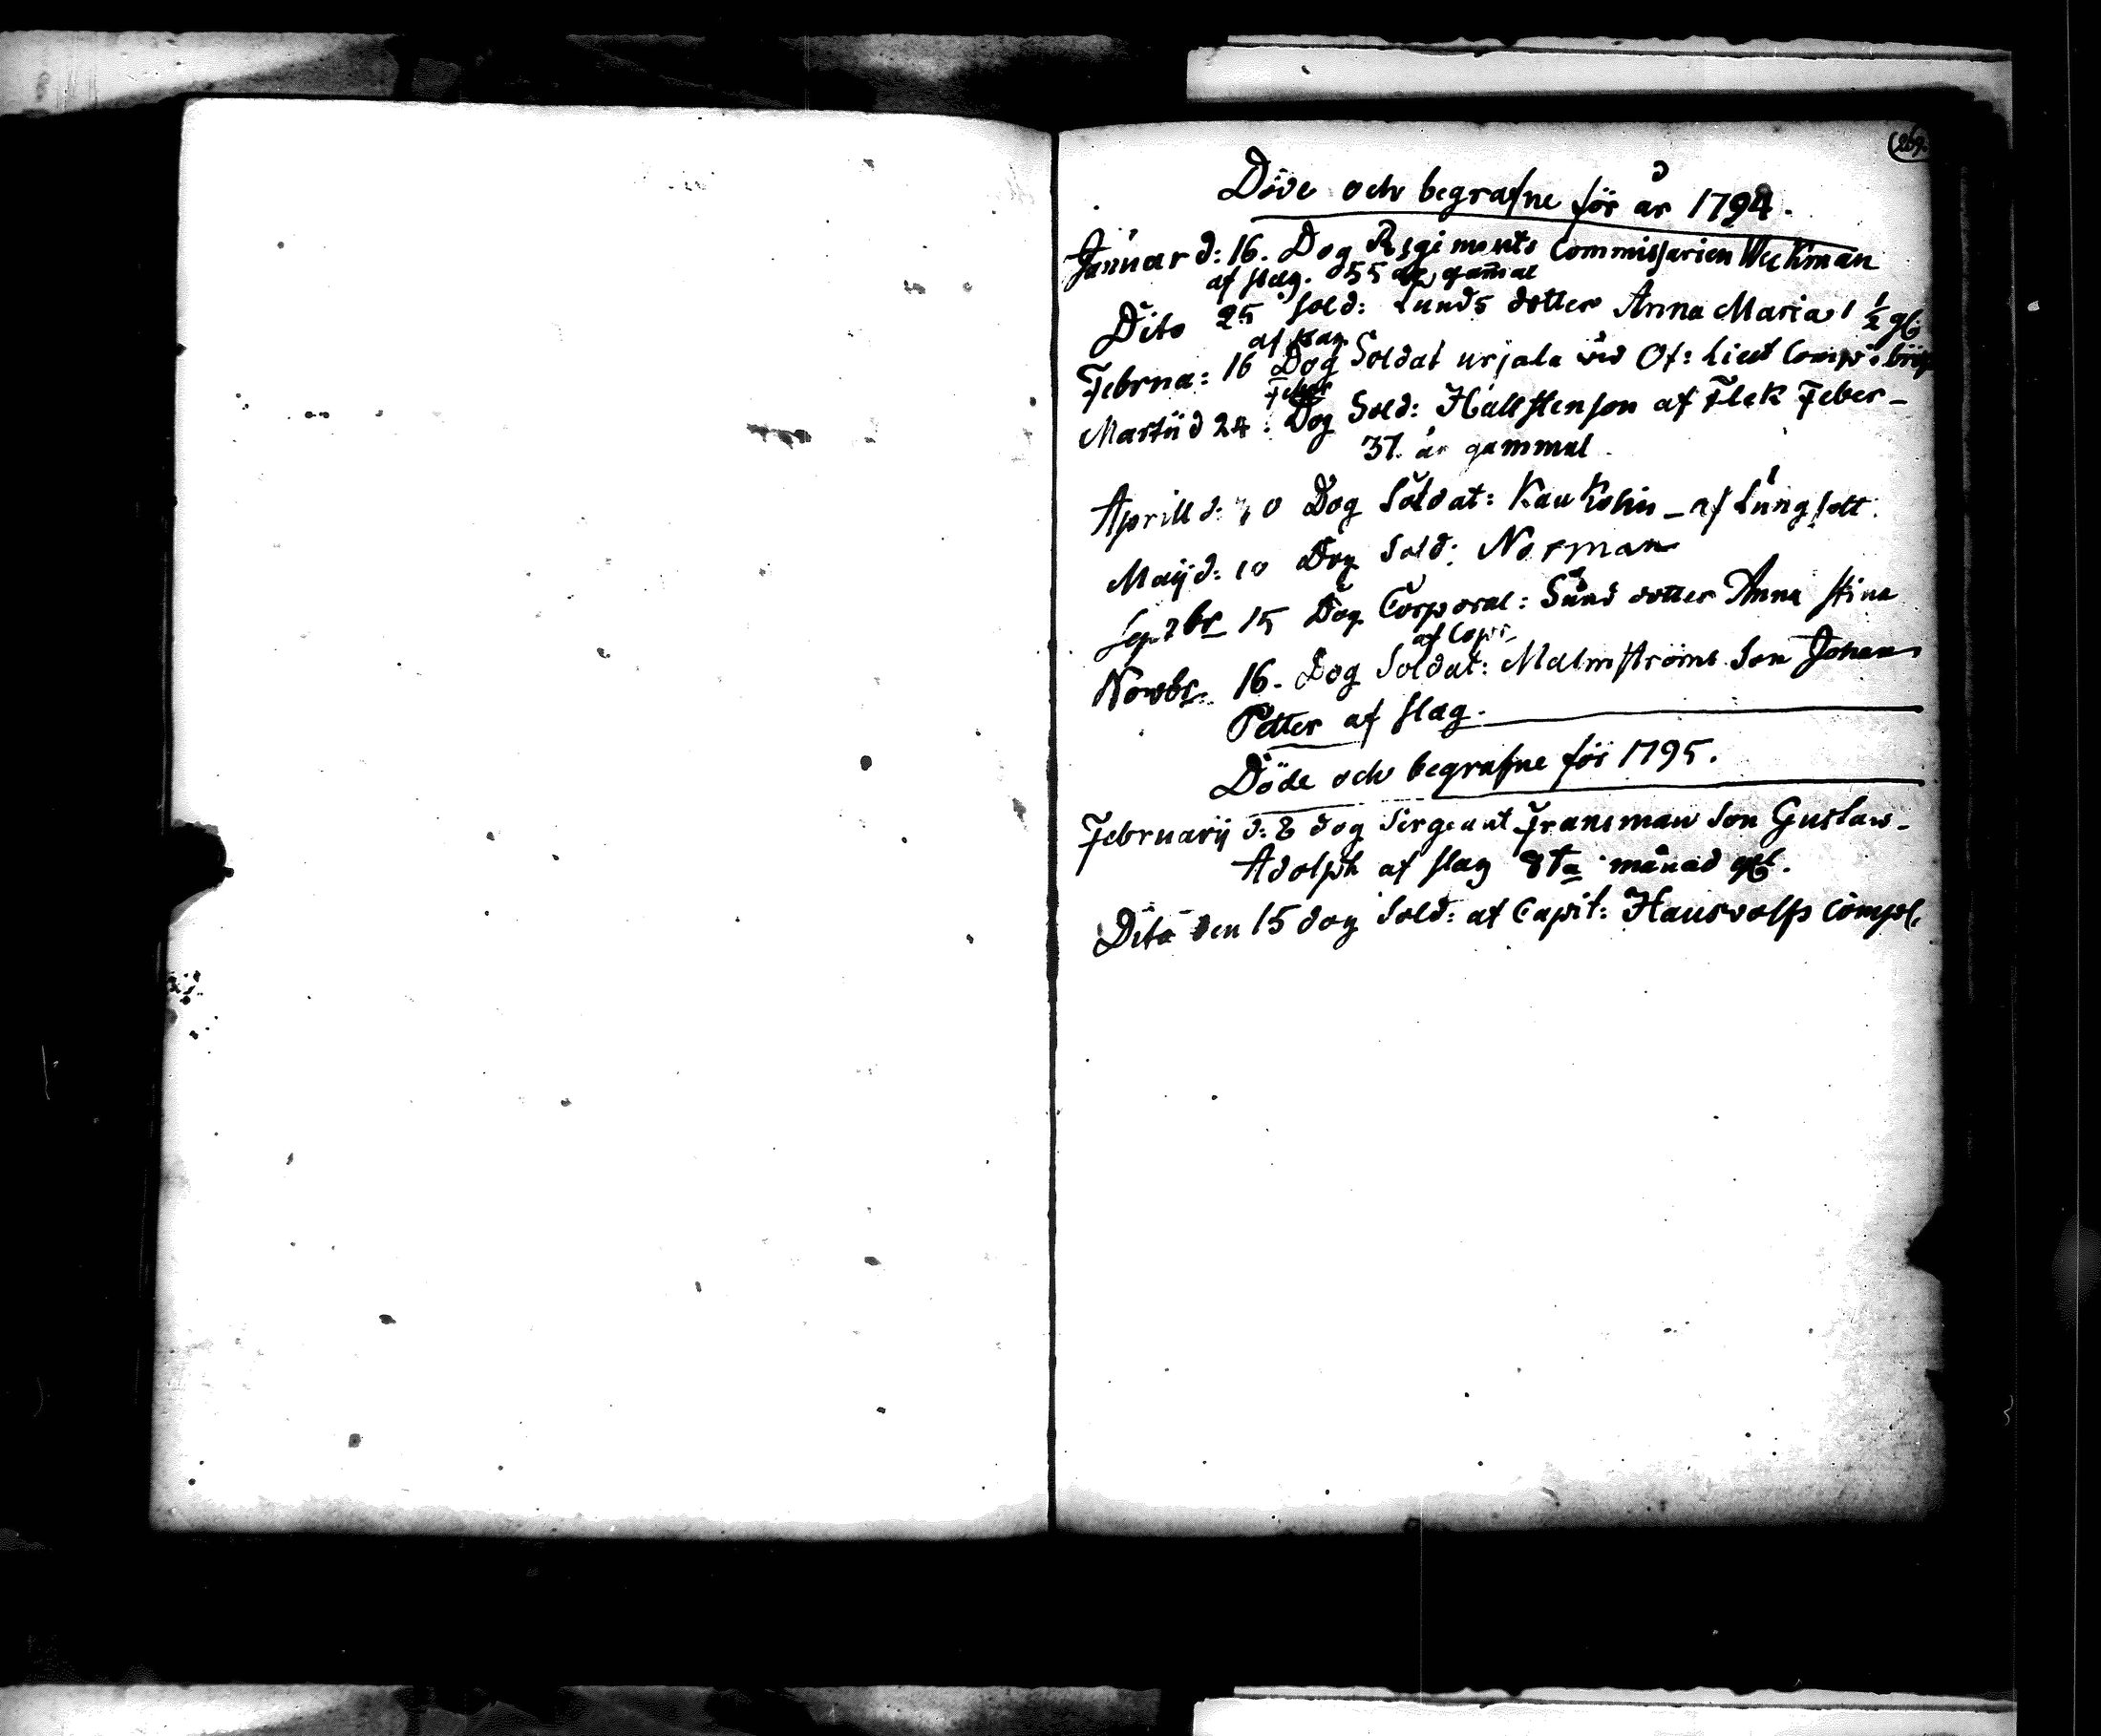 269.
Döde och begrafne för år 1794.
Januar d: 16. Dog Regiments Commissarien Weckman
af slag. 55 år gamal
Dito 25 Sold: Lunds dotter Anna Maria 1 1/2 gl:
af slag
Februa: 16 Dog Soldat urjala vid Of: Lieut Comp:
Feber
Martii d 24. Dog Sold: Hallstenson af Flek Feber-
37. år gammal.
Aprill d: 10 Dog Soldat: Kaukohin - af Lungsott.
Maij d: 10 Dog Sold: Norman
Septbr 15 Dog Corporal: Sund dotter Anna Stina
af Copr
Novbr. 16. Dog Soldat: Malmströms Son Johan
Petter af slag.
Döde och begrafne för 1795.
Februarij d: 8 dog Sergeant Fransman Son Gustaw-
Adolph af slag 8ta månad gl.
Dito den 15 dog Sold: af Capit: Hausvolfs Compl.